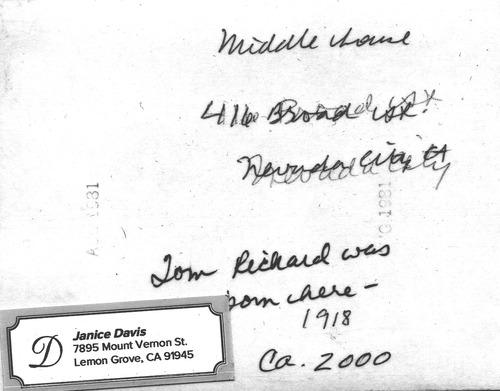 Middle house
416 Broad St.
Nevada City
1981
1981
Tom Richard was
born here -
1918
Ca. 2000
D
Janice Davis
7895 Mount Vernon St.
Lemon Grove, CA 91945